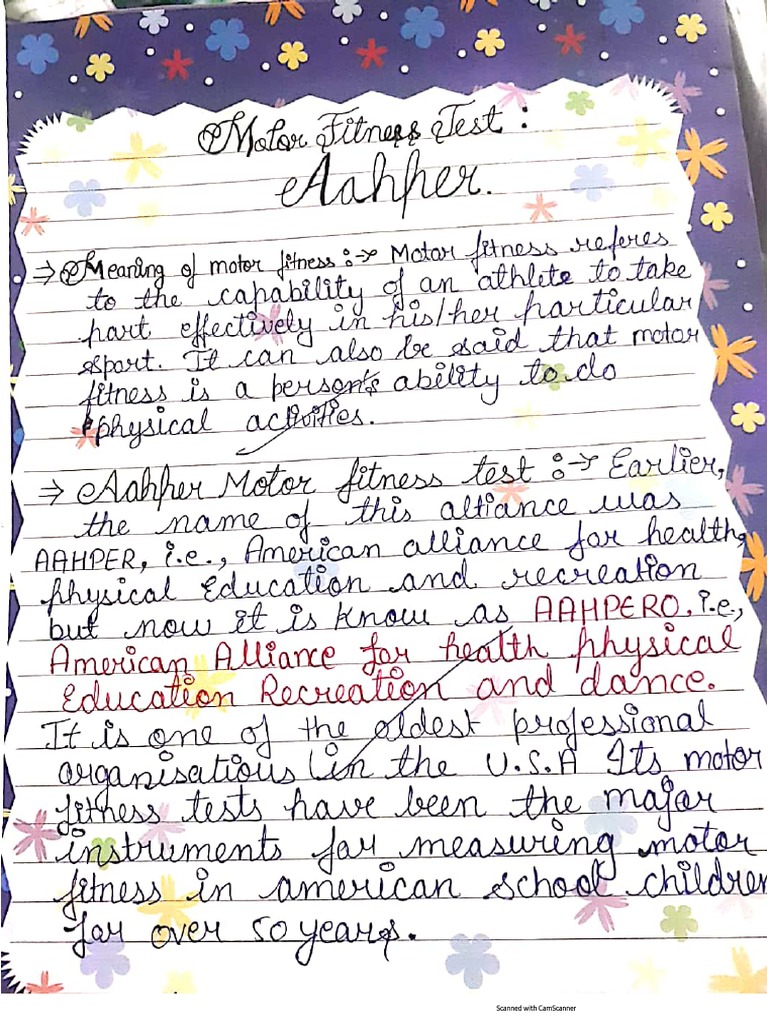 Motor Fitness Test :
Aahper.
⇒ Meaning of motor fitness :→ Motor fitness referes
to the capability of an athlete to take
part effectively in his/her particular
sport. It can also be said that motor
fitness is a person's ability to do
physical activities.
⇒ Aahper Motor fitness test :→ Earlier,
the name of this alliance was
AAHPER, i.e., American alliance for health,
physical Education and recreation
but now it is know as AAHPERO. i.e.,
American Alliance for health physical
Education Recreation and dance.
It is one of the oldest professional
organisations in the U.S.A Its motor
fitness tests have been the major
instruments for measuring motor
fitness in american school children
for over 50 years.
Scanned with CamScanner